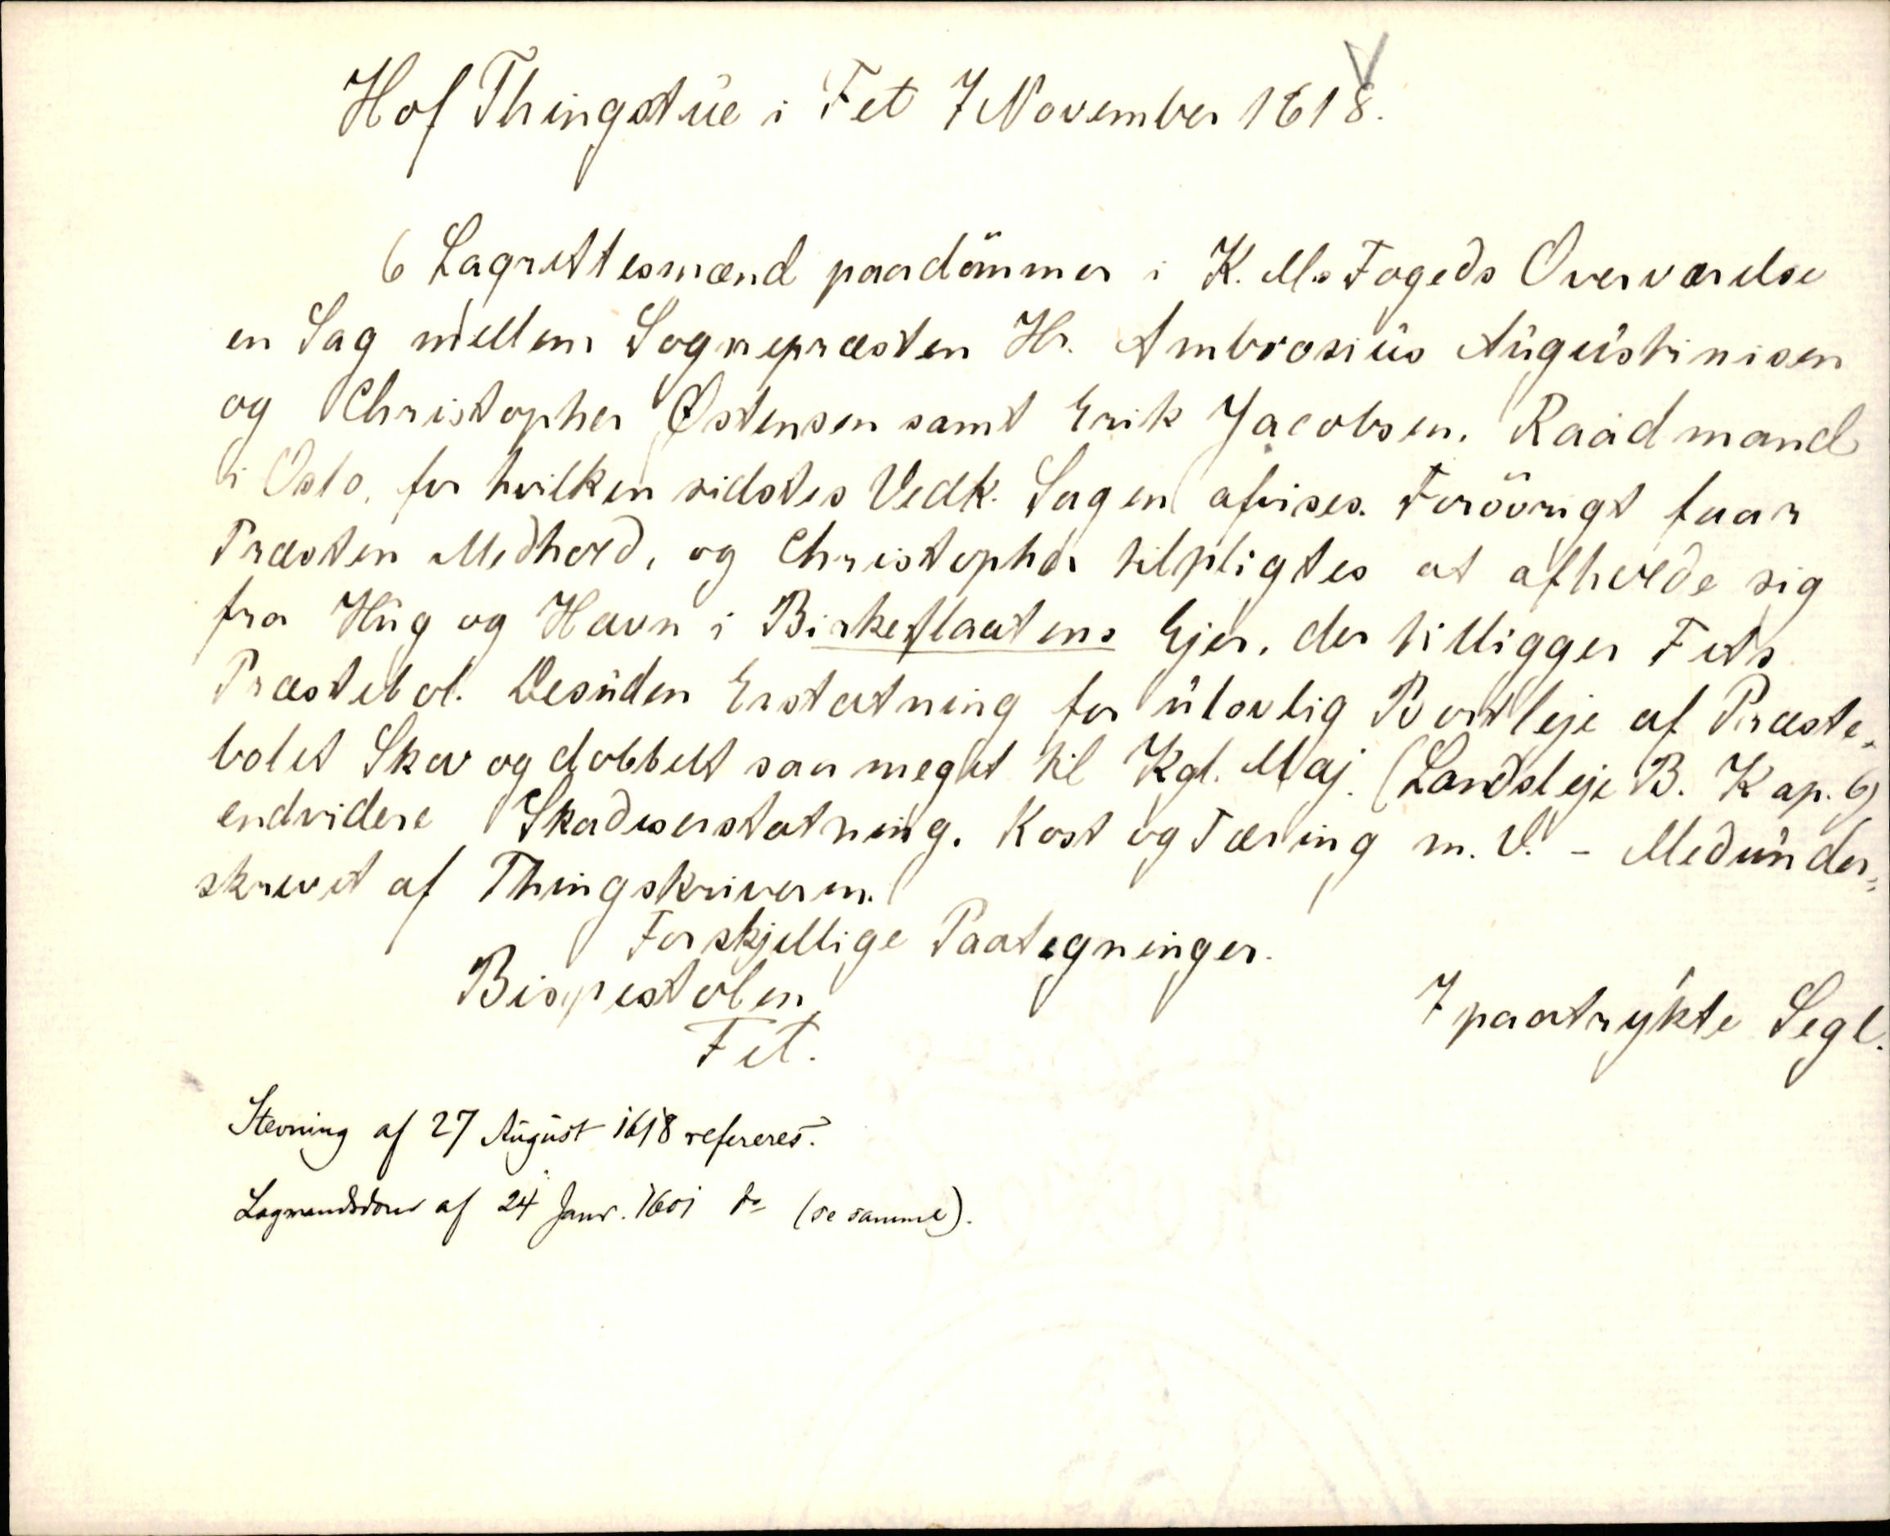 Hof Thingstue i Fet 7 November 1618.
6 Lagrettesmænd paadömmer i K. Ms Fogeds Overværelse
en Sag mellem Sognepræsten Hr. Ambrosius Augustinisen
og Christopher Østensen samt Erik Jacobsen, Raadmand
i Oslo, for hvilken sidstes Vedk. Sagen afvises. Foröorigt faar
Præsten Medhold, og Christopher tilpligtes at afholde sig
fra Hug og Havn i Birkeflaatens Ejer, der tilligger Fets
Præstebol. Desuden Erstatning for ulovlig Bortleje af Præste-
bolet Skov og dobbelt saa meget til Kgl. Maj. (Landsleje B. Kap. 6)
endvidere Skadeserstatning, Kost og Tæring m. V. - Medunder-
skrevet af Thingskriveren.
Forskjellige Paategninger.
Bispestolen
Fet.
7 paatrykte Segl.
Stevning af 27 August 1618 refereres.
Lagmandsdom af 24 Janr. 1601 do (se samme).